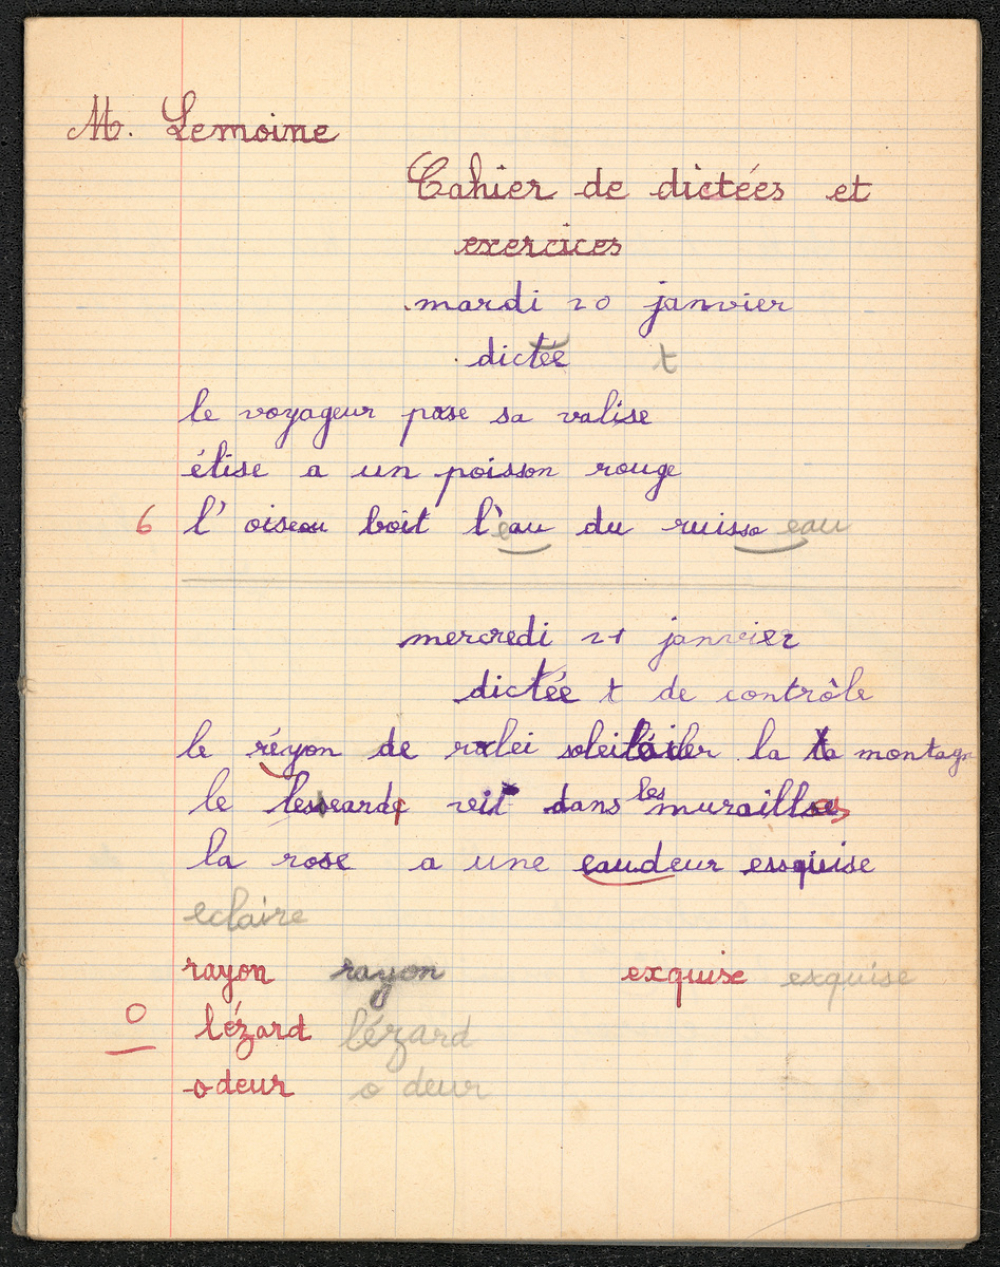 M. Lemoine
Cahier de dictées et
exercices
mardi 20 janvier
dictée t
le voyageur pose sa valise
élise a un poisson rouge
6 l' oiseau boit l'eau du ruisseau
mercredi 21 janvier
dictée t de contrôle
le réyon de solei la montagn
le dans les murailles
la rose a une eaudeur essquise
eclaire
rayon rayon exquise exquise
0 lézard lézard
odeur o deur